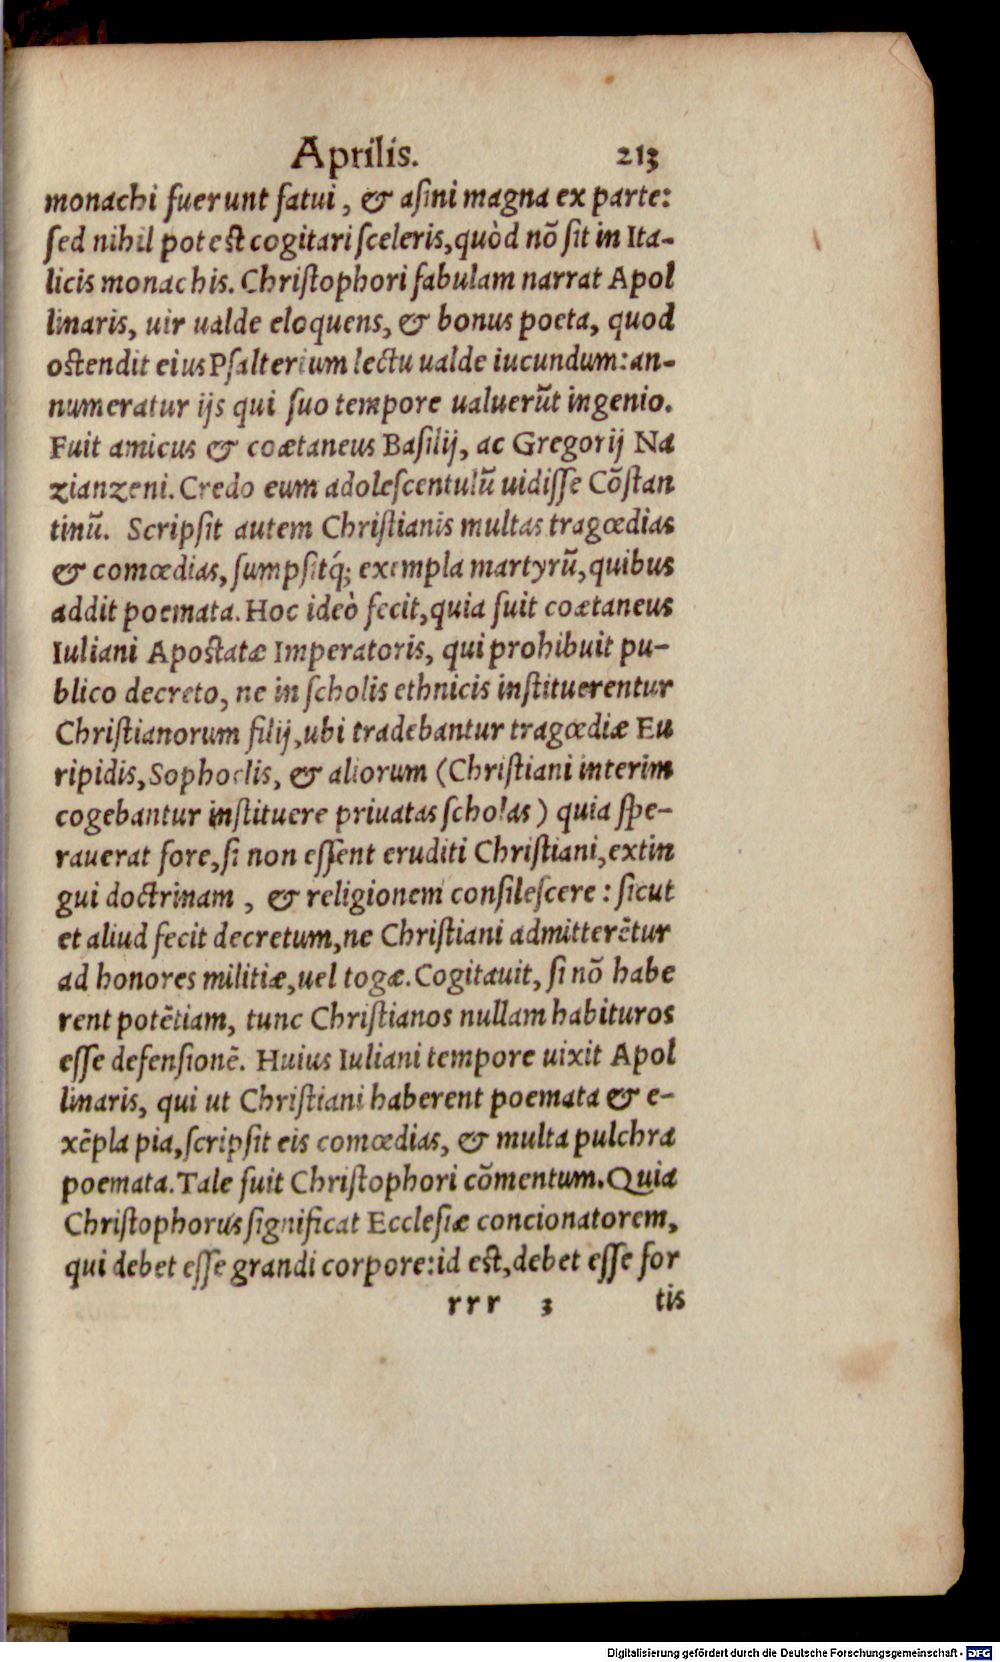 Aprilis. 213
monachi fuerunt fatui, & aſini magna ex parte:
ſed nihil poteſt cogitari ſceleris, quòd nõ ſit in Ita-
licis monachis. Chriſtophori fabulam narrat Apol
linaris, uir ualde eloquens, & bonus poeta, quod
oſtendit eius Pſalterium lectu ualde iucundum: an-
numeratur ijs qui ſuo tempore ualuerũt ingenio.
Fuit amicus & coætaneus Baſilij, ac Gregorij Na
zianzeni. Credo eum adoleſcentulũ uidiſſe Cõſtan
tinũ. Scripſit autem Chriſtianis multas tragœdias
& comœdias, ſumpſitq́; exempla martyrũ, quibus
addit poemata. Hoc ideò fecit, quia fuit coætaneus
Iuliani Apoſtatæ Imperatoris, qui prohibuit pu-
blico decreto, ne in ſcholis ethnicis inſtituerentur
Chriſtianorum filij, ubi tradebantur tragœdiæ Eu
ripidis, Sophoclis, & aliorum (Chriſtiani interim
cogebantur inſtituere priuatas ſcholas) quia ſpe-
rauerat fore, ſi non eſſent eruditi Chriſtiani, extin
gui doctrinam, & religionem conſileſcere: ſicut
et aliud fecit decretum, ne Chriſtiani admitterẽtur
ad honores militiæ, uel togæ. Cogitauit, ſi nõ habe
rent potẽtiam, tunc Chriſtianos nullam habituros
eſſe defenſionẽ. Huius Iuliani tempore uixit Apol
linaris, qui ut Chriſtiani haberent poemata & e-
xẽpla pia, ſcripſit eis comœdias, & multa pulchra
poemata. Tale fuit Chriſtophori cõmentum. Quia
Chriſtophorus ſignificat Eccleſiæ concionatorem,
qui debet eſſe grandi corpore: id eſt, debet eſſe for
rrr 3 tis
Digitalisierung gefördert durch die Deutsche Forschungsgemeinschaft - DFG